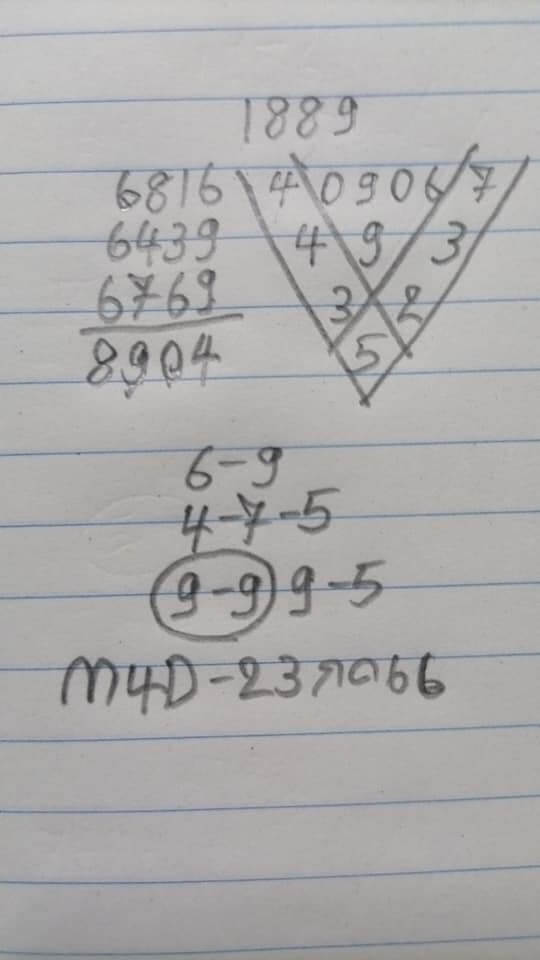 1889
6816 4 0906 7
6439 4 9 3
6769 3 2
8904 5
6-9
4-7-5
9-9 9-5
M4D-23กค66